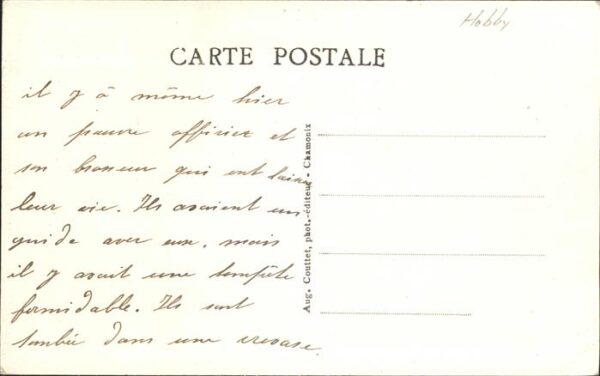 Hobby
CARTE POSTALE
il y à même hier
un pauvre officier et
son brosseur qui ont laissé
leur vie. Ils avaient un
guide avec eux, mais
il y avait une tempête
formidable. Ils sont
tombés dans une crevasse.
Aug. Couttet, phot.-éditeur - Chamonix